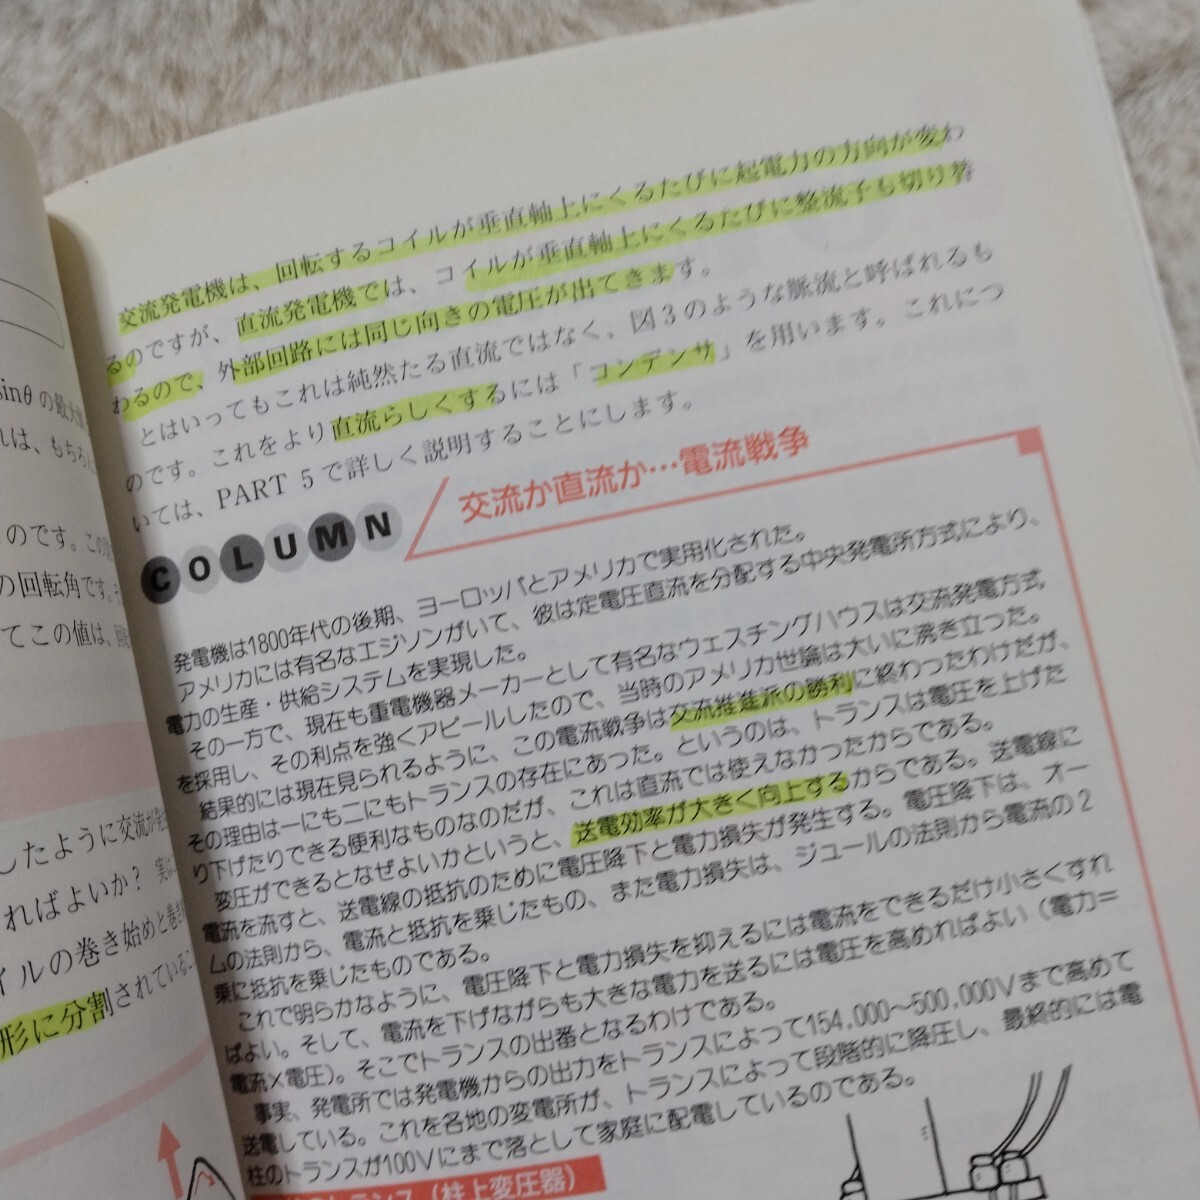 交流発電機は、回転するコイルが垂直軸上にくるたびに起電力の方向が変わ
るのですが、直流発電機では、コイルが垂直軸上にくるたびに整流子も切り替
わるので、外部回路には同じ向きの電圧が出てきます。
とはいってもこれは純然たる直流ではなく、図3のような脈流と呼ばれるも
のです。これをより直流らしくするには「コンデンサ」を用います。これにつ
いては、PART 5で詳しく説明することにします。
COLUMN
交流か直流か…電流戦争
発電機は1800年代の後期、ヨーロッパとアメリカで実用化された。
アメリカには有名なエジソンがいて、彼は定電圧直流を分配する中央発電所方式により、
電力の生産・供給システムを実現した。
その一方で、現在も重電機器メーカーとして有名なウェスチングハウスは交流発電方式
を採用し、その利点を強くアピールしたので、当時のアメリカ世論は大いに沸き立った。
結果的には現在見られるように、この電流戦争は交流推進派の勝利に終わったわけだが、
その理由は一にも二にもトランスの存在にあった。というのは、トランスは電圧を上げた
り下げたりできる便利なものなのだが、これは直流では使えなかったからである。
変圧ができるとなぜよいかというと、送電効率が大きく向上するからである。送電線に
電流を流すと、送電線の抵抗のために電圧降下と電力損失が発生する。電圧降下は、オー
ムの法則から、電流と抵抗を乗じたもの、また電力損失は、ジュールの法則から電流の2
乗に抵抗を乗じたものである。
これで明らかなように、電圧降下と電力損失を抑えるには電流をできるだけ小さくすれ
ばよい。そして、電流を下げながらも大きな電力を送るには電圧を高めればよい（電力＝
電流×電圧）。そこでトランスの出番となるわけである。
事実、発電所では発電機からの出力をトランスによって154,000～500,000Vまで高めて
送電している。これを各地の変電所が、トランスによって段階的に降圧し、最終的には電
柱のトランスが100Vにまで落として家庭に配電しているのである。
のトランス（柱上変圧器）
sinθの最大
れは、もちろ
のです。この
の回転角です。
てこの値は、
したように交流が
ればよいか？ 実
イルの巻き始めと巻き
形に分割されている